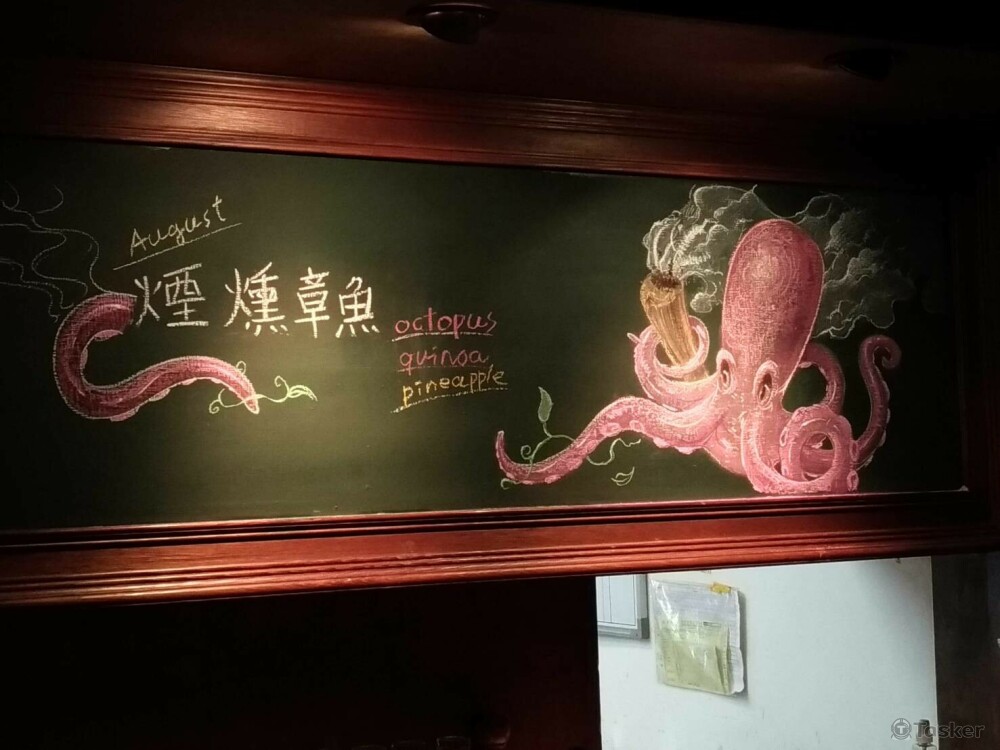 August
煙燻章魚
octopus
quinoa
pineapple
Tasker